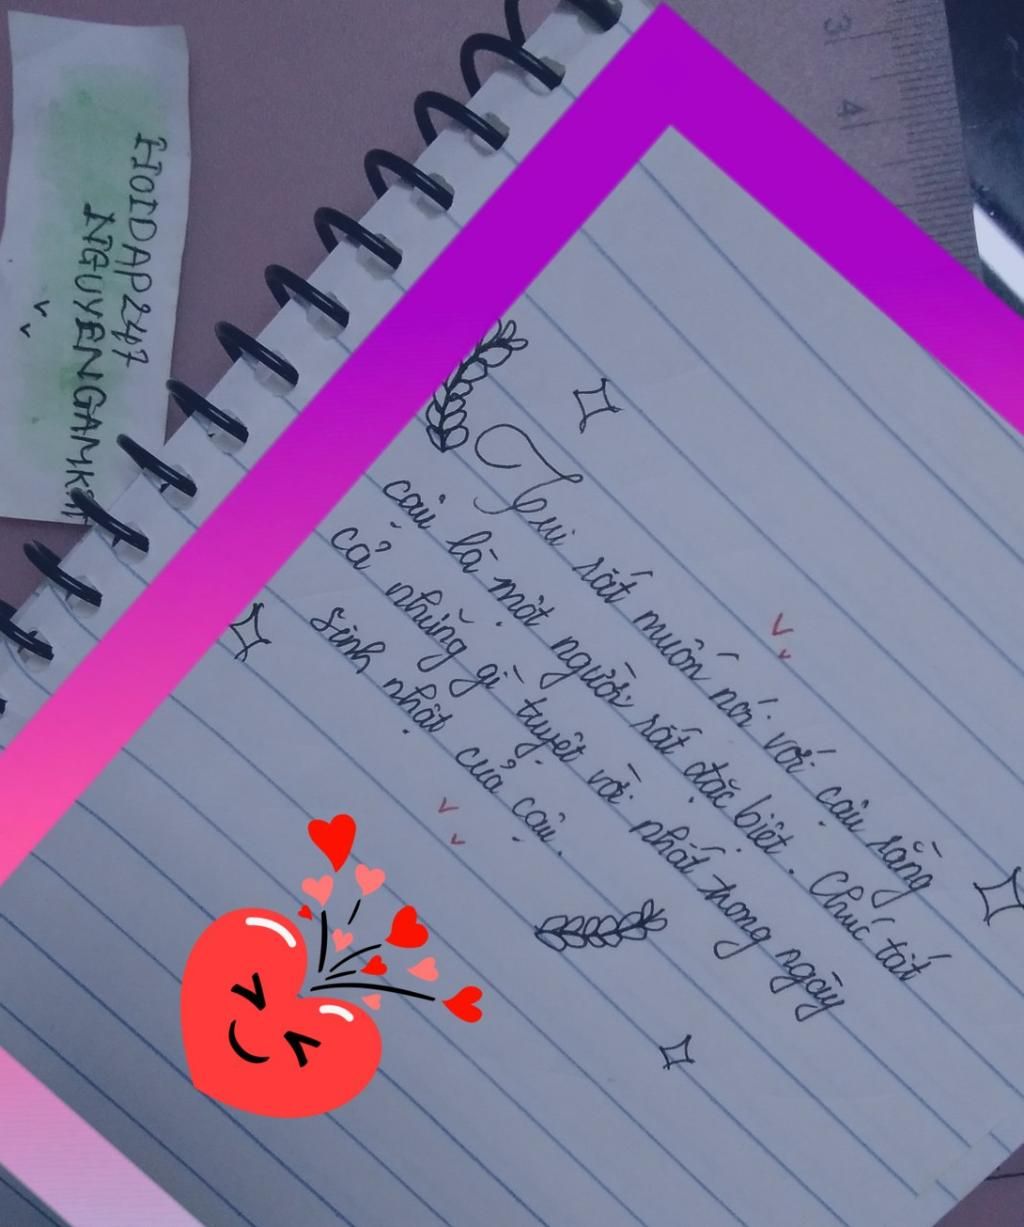 HOIDAP247
NGUYENGAMK
3
4
Tui rất muốn nói với cậu rằng
cậu là một người rất đặc biệt. Chúc tất
cả những gì tuyệt vời nhất trong ngày
sinh nhật của cậu.